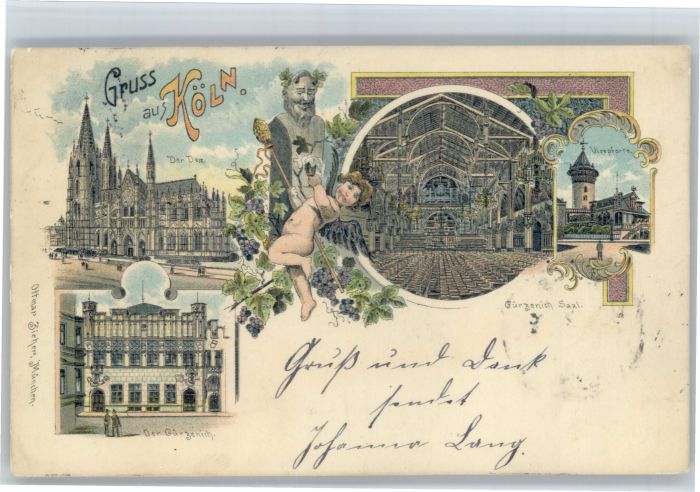 Gruss
aus Köln.
Der Dom.
Gürzenich Saal.
Der Gürzenich.
Ottmar Zieher, München.
Gruß und Dank
sendet
Johanna Lang.